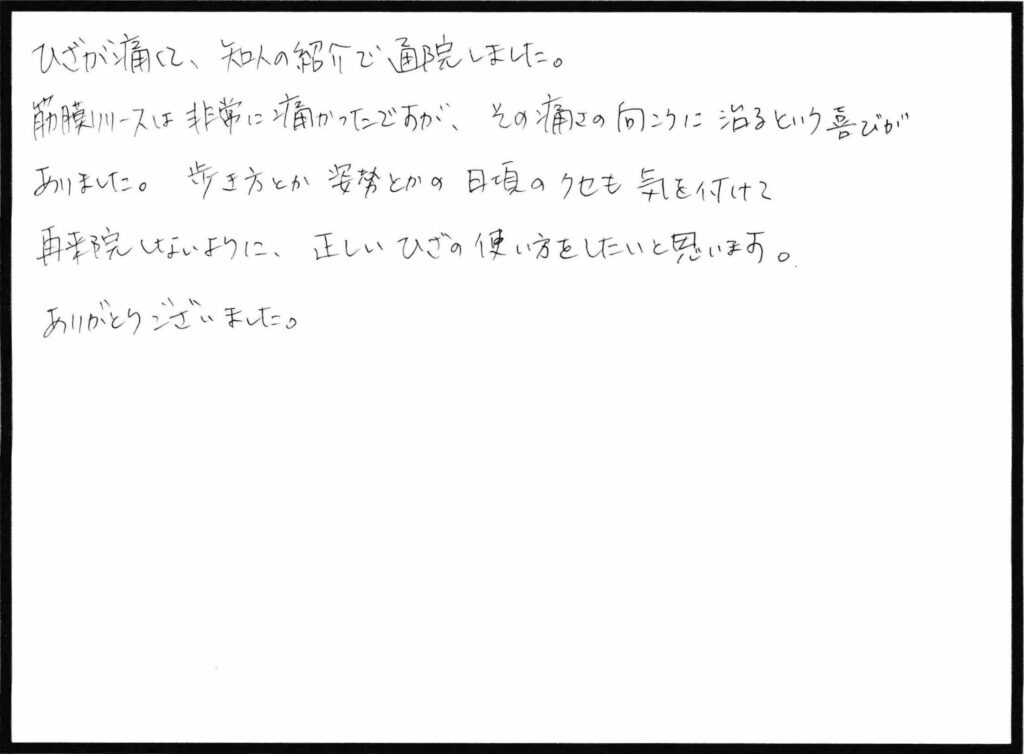 ひざが痛くて、知人の紹介で通院しました。
筋膜リリースは非常に痛かったですが、その痛さの向こうに治るという喜びが
ありました。 歩き方とか姿勢とかの日頃のクセも気を付けて
再来院しないように、正しいひざの使い方をしたいと思います。
ありがとうございました。